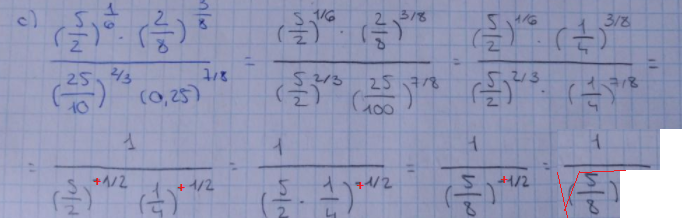 c) ((5/2)^(1/6) · (2/8)^(3/8)) / ((25/10)^(2/3) (0,25)^(7/8)) = ((5/2)^(1/6) · (2/8)^(3/8)) / ((5/2)^(2/3) (25/100)^(7/8)) = ((5/2)^(1/6) · (1/4)^(3/8)) / ((5/2)^(2/3) · (1/4)^(7/8)) =
= 1 / ((5/2)^(+1/2) (1/4)^(+1/2)) = 1 / (5/2 · 1/4)^(+1/2) = 1 / (5/8)^(+1/2) = 1 / √(5/8)